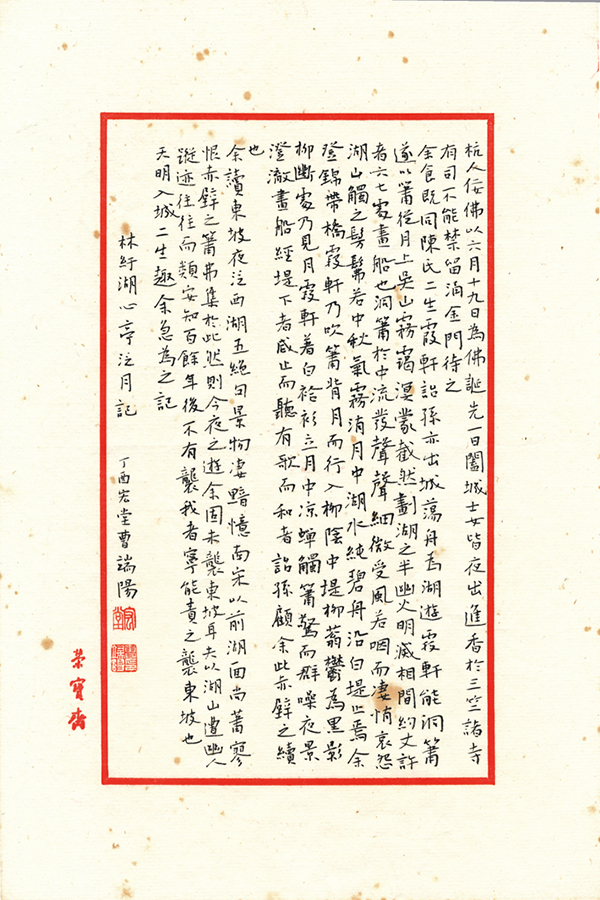 杭人佞佛以六月十九日為佛誕先一日闔城士女皆夜出進香於三竺諸寺
有司不能禁留涌金門待之
余食既同陳氏二生霞軒詒孫亦出城蕩舟為湖遊霞軒能洞簫
遂以簫從月上吳山霧靄溟蒙截然劃湖之半幽火明滅相間約丈許
者六七處畫船也洞簫於中流發聲聲細微受風若咽而淒悄哀怨
湖山觸之髣髴若中秋氣霧消月中湖水純碧舟沿白堤止焉余
登錦帶橋霞軒乃吹簫背月而行入柳陰中堤柳蓊鬱為黑影
柳斷處乃見月霞軒著白袷衫立月中涼蟬觸簫驚而群噪夜景
澄澈畫船經堤下者咸止而聽有歌而和者詒孫顧余此赤壁之續
也
余讀東坡夜泛西湖五絕句景物淒黯憶南宋以前湖面尚蕭寥
恨赤壁之簫弗集於此然則今夜之遊余固未襲東坡耳夫以湖山遭幽人
蹤迹往往而類安知百餘年後不有襲我者寧能責之襲東坡也
天明入城二生趣余急為之記
林紓湖心亭泛月記 丁酉宏堂曹端陽
宏堂
榮寶齋